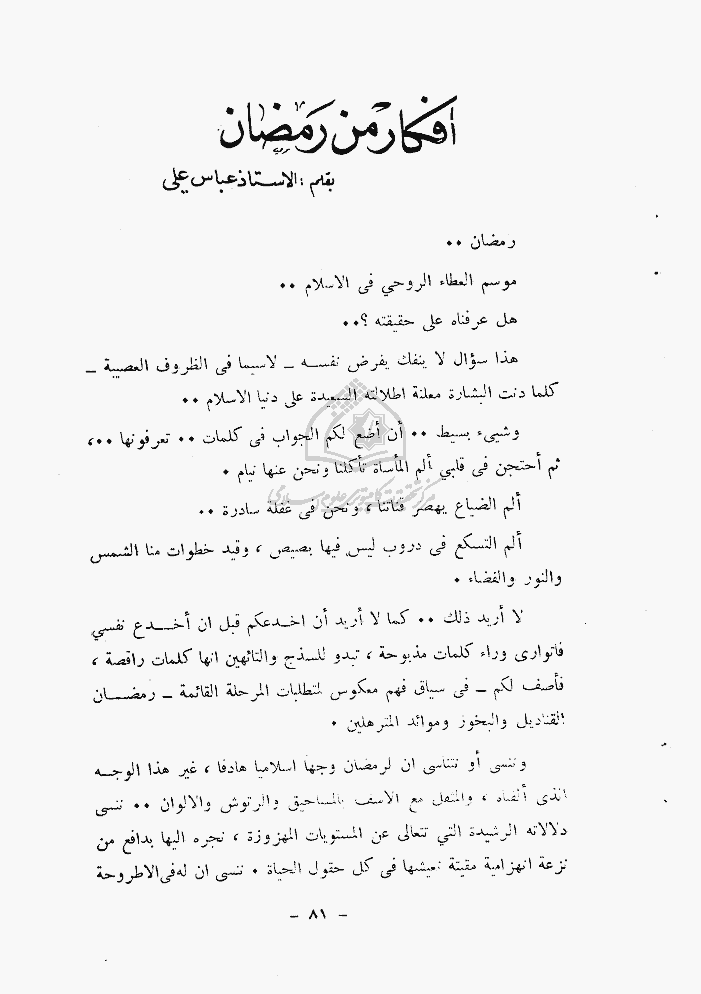 أفكار من رمضان
بقلم : الاستاذ عباس علي
رمضان ٠٠
موسم العطاء الروحي فى الاسلام ٠٠
هل عرفناه على حقيقته ؟٠٠
هذا سؤال لا ينفك يفرض نفســه ـ لاسيما فى الظروف العصيبة ـ
كلما دنت البشارة معلنة اطلالته السعيدة على دنيا الاسلام ٠٠
وشيىء بسيط ٠٠ أن أضع لكم الجواب فى كلمات ٠٠ تعرفونها ٠٠،
ثم أحتجن فى قلبي ألم المأساة تأكلنا ونحن عنها نيام ٠
ألم الضياع يهصر قناتنا ، ونحن فى غفلة سادرة ٠٠
ألم التسكع فى دروب ليس فيها بصيص ، وقيد خطوات منا الشمس
والنور والفضاء ٠
لا أريد ذلك ٠٠ كما لا أريد أن اخـدعكم قبل ان أخـــدع نفسي
فاتوارى وراء كلمات مذبوحة ، تبدو للسذج والتائهين انها كلمات راقصة ،
فأصف لكم ـ فى سياق فهم معكوس لمتطلبات المرحلة القائمة ـ رمضـــان
القناديل والبخور وموائد المترهلين ٠
وننسى أو نتناسى ان لرمضان وجها اسلاميا هادفا ، غير هذا الوجــه
الذى ألفناه ، والمثقل مع الاسف بالمساحيق والرتوش والالوان ٠٠ ننسى
دلالاته الرشيدة التي تتعالى عن المستويات المهزوزة ، نجره اليها بدافع من
نزعة انهزامية مقيتة نعيشها فى كل حقول الحياة ٠ ننسى ان له فى الاطروحة
ـ ٨١ ـ